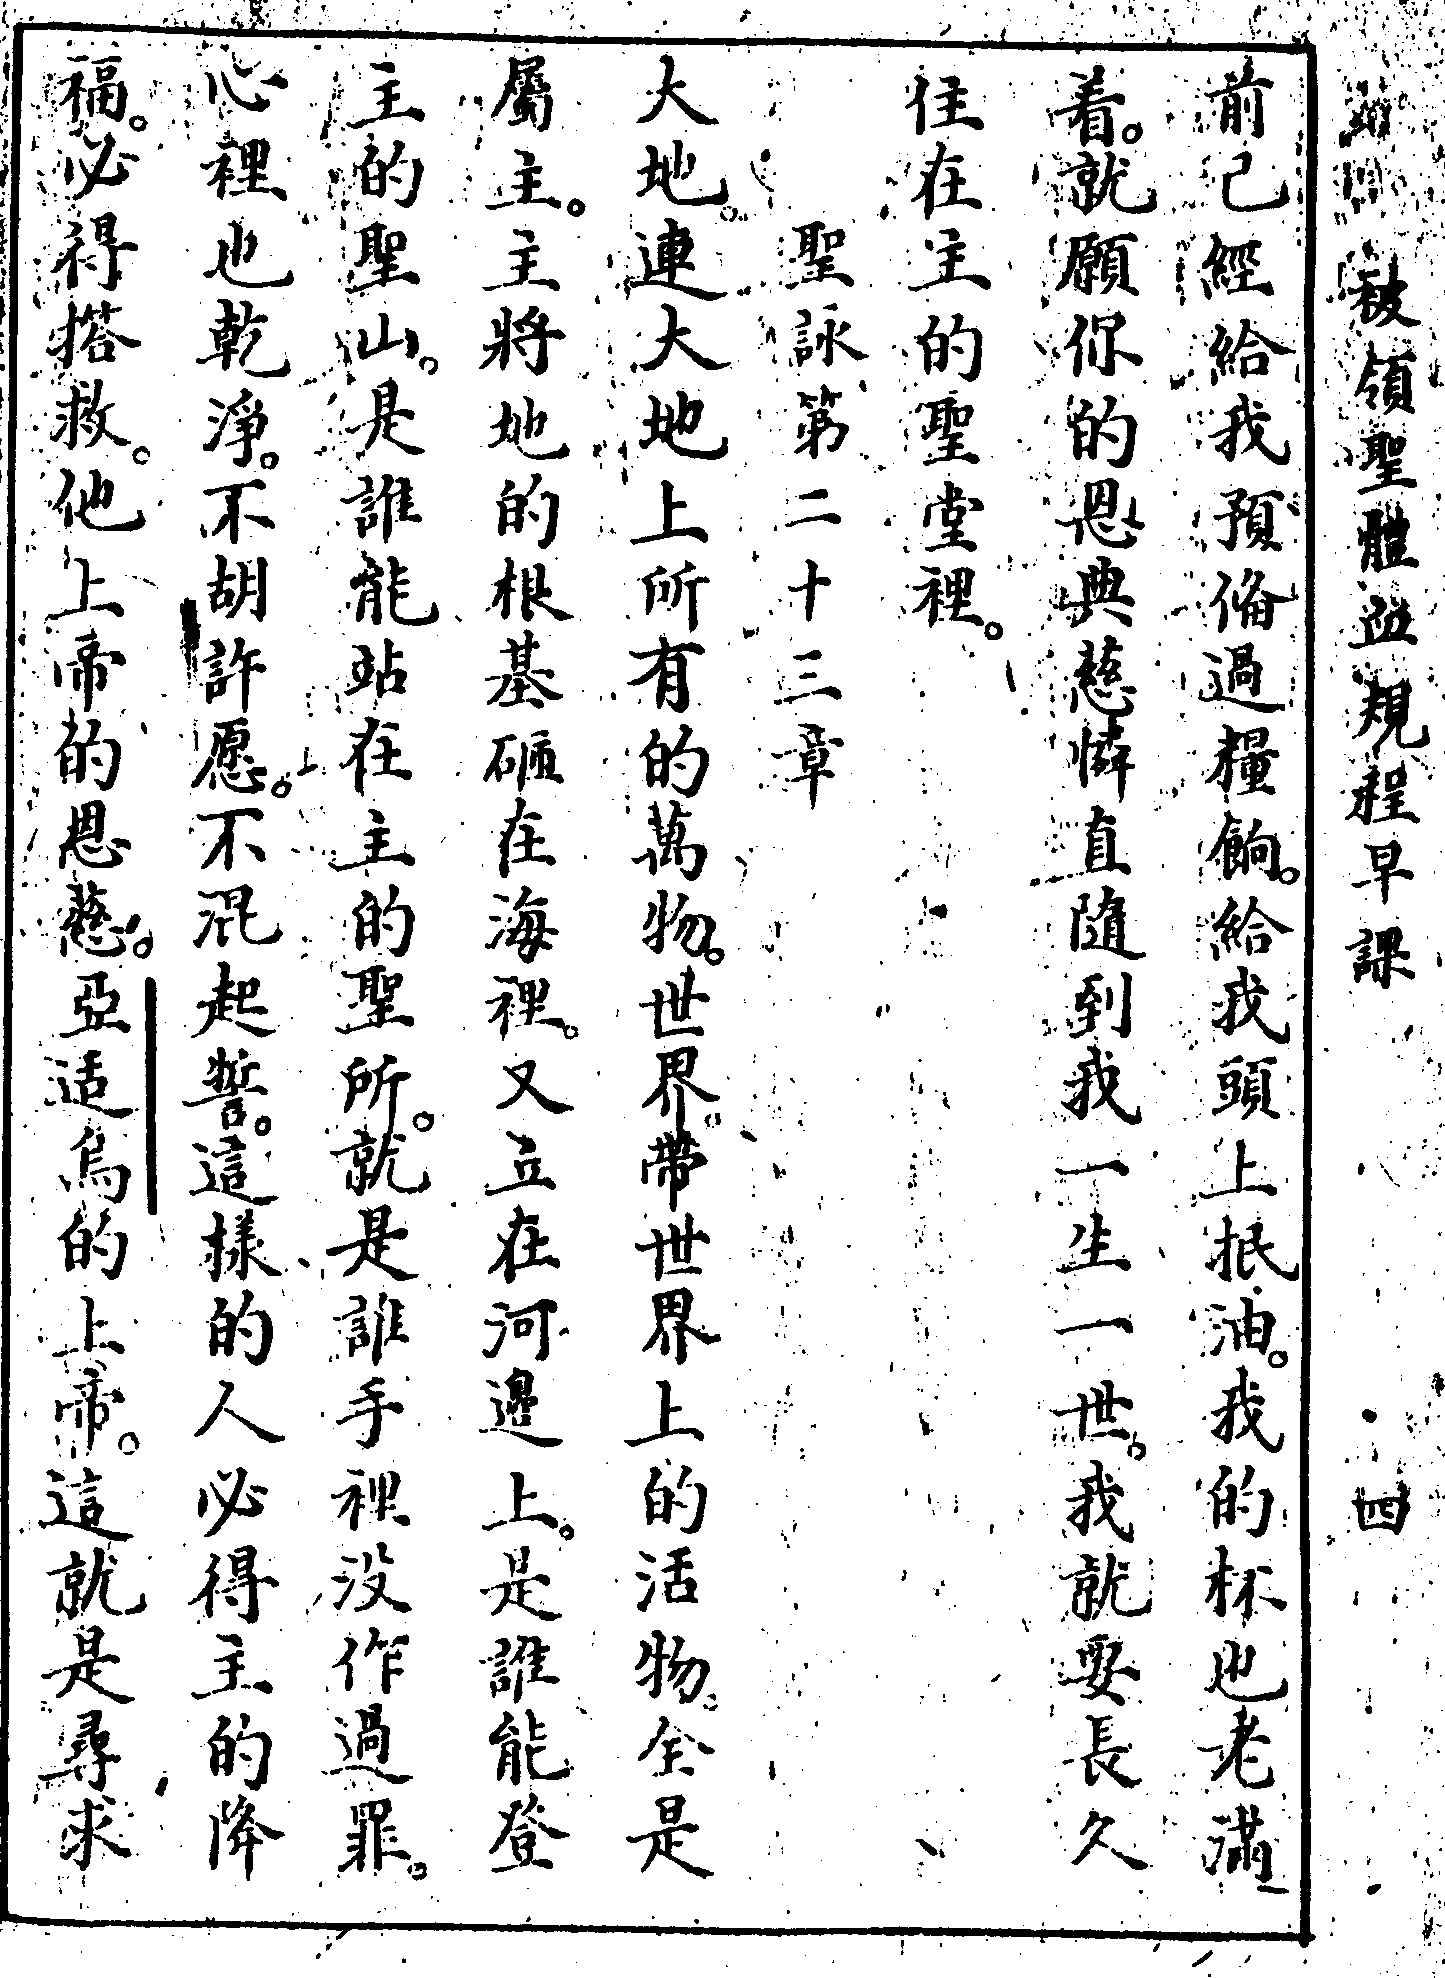 被領聖體血規程早課
四
前已經給我預俻過糧餉。給我頭上抿油。我的杯也老滿
着。就願你的恩典慈憐直隨到我一生一世。我就要長久
住在主的聖堂裡。
聖詠第二十三章
大地。連大地上所有的萬物。世界。帶世界上的活物。全是
屬主。主將地的根基砸在海裡。又立在河邊上。是誰能登
主的聖山。是誰能站在主的聖所。就是誰手裡没作過罪。
心裡也乾淨。不胡許愿。不混起誓。這樣的人必得主的降
福。必得搭救。他上帝的恩慈。亞适烏的上帝。這就是尋求